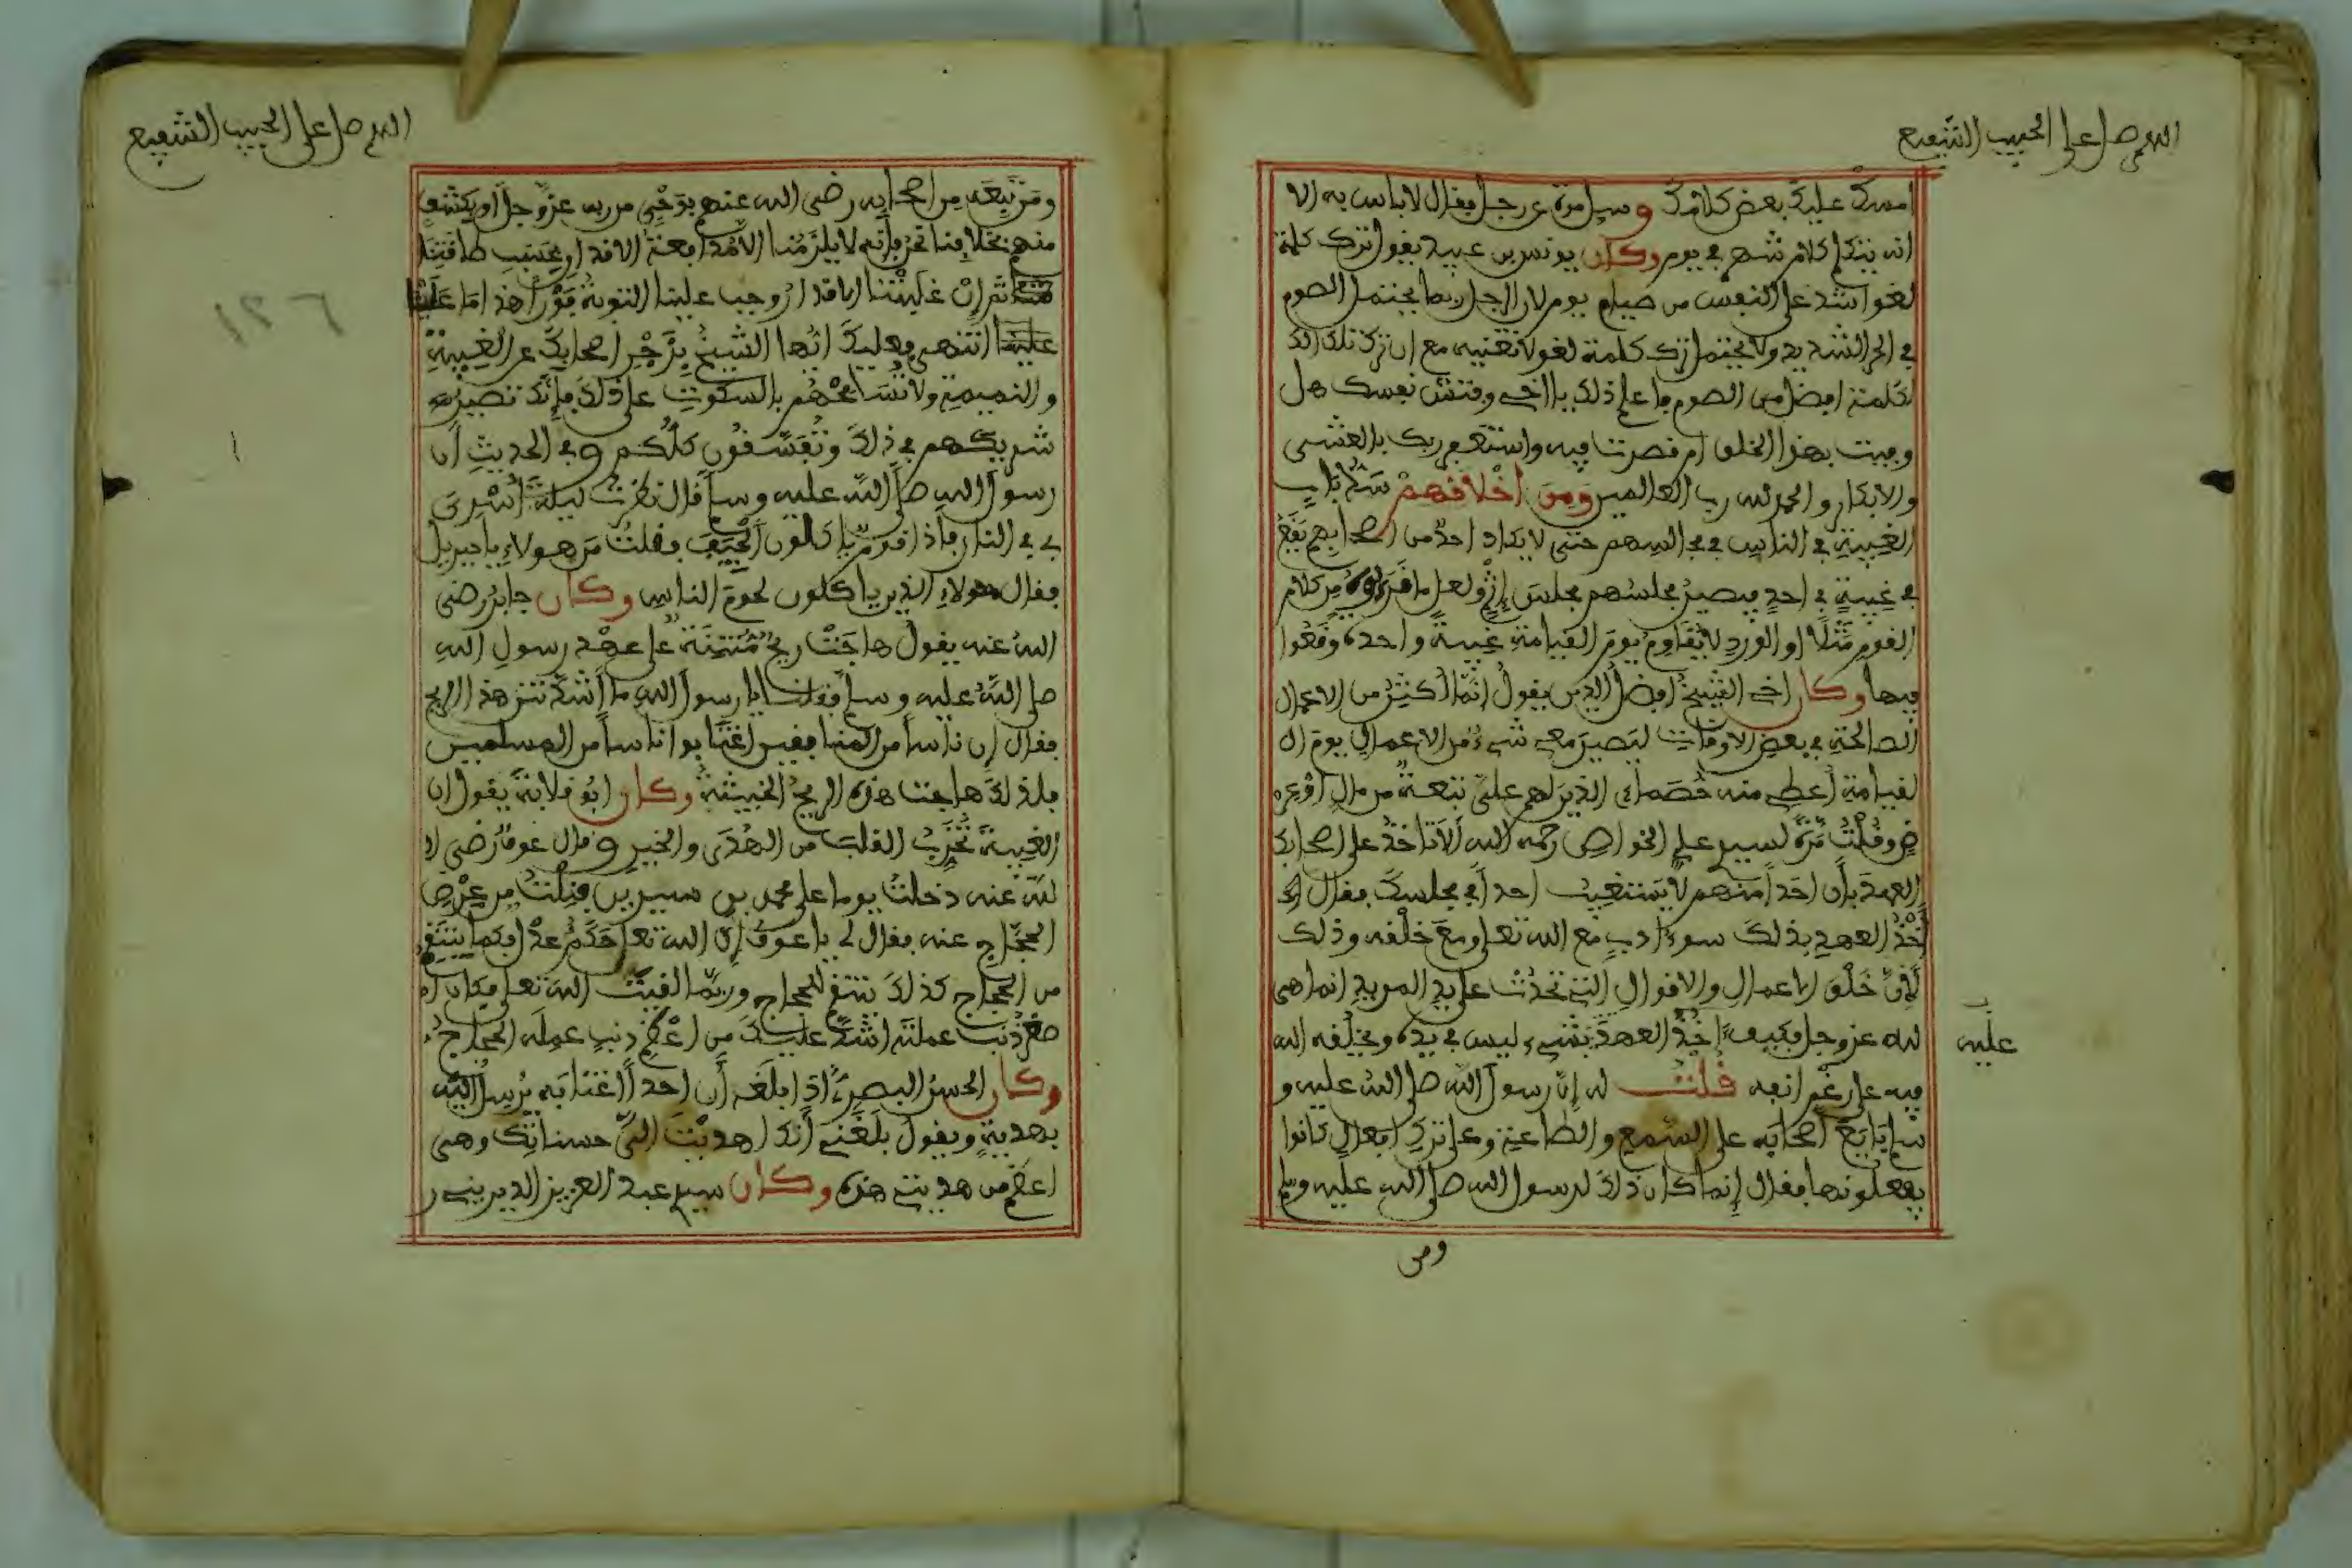 اللهم صل على الحبيب الشفيع
امسك عليك بعض كلامك وسيل مرة عن رجل فقال لا باس به الا
انه يتكلم كلام شهر في يوم وكان يونس بن عبيد يقول ترك كلمة
لغو اشد على النفس من صيام يوم لان الرجل ربما يحتمل الصوم
في الحر الشديد ولا يحتمل ترك كلمة لغو لا تعنيه مع ان ترك تلك الك
لكلمة افضل من الصوم فاعلم ذلك يا اخي وفتش نفسك هل
وفيت بهذا الخلق ام قصرت فيه واستغفر ربك بالعشي
والابكار والحمد لله رب العالمين ومن أخلاقهم سد باب
الغيبة في الناس في مجالسهم حتى لا يكاد احد من اصحابهم يقع
في غيبة في احد فيصير مجلسهم مجلس إثم ولعل ما قرءوه من كلام
القوم مثلا او الورد لا يقاوم يوم القيامة غيبة واحدة وقعوا
فيها وكان اخي الشيخ افضل الدين يقول انما أكثر من الاعمال
الصالحة في بعض الاوقات ليصير معي شيء من الاعمال يوم ال
لقيامة أعطي منه خصماءي الذين لهم علي تبعة من مال او عر
ض وقلت مرة لسيدي علي الخواص رحمه الله ألا تاخذ على اصحابك
العهد بأن احدا منهم لا يستغيب احدا في مجلسك فقال
أخذ العهد بذلك سوء ادب مع الله تعلى ومع خلقه وذلك
لأن خلق الاعمال والاقوال التي تحدث على يد المريد انما هي
لله عز وجل فكيف اخذ العهد بشيء ليس في يده ويخلقه الله
عليه
فيه على رغم انفه قلت له إن رسول الله صلى الله عليه و
سلم بايع أصحابه على السمع والطاعة وعلى ترك افعال كانوا
يفعلونها فقال إنما كان ذلك لرسول الله صلى الله عليه وسلم
ومن
اللهم صل على الحبيب الشفيع
ومن تبعه من اصحابه رضي الله عنهم بوحي من ربه عز وجل أو بكشف
منهم بخلافنا نحن فإنه لا يلزمنا الا مدافعة الاقدار بحسب طاقتنا
ثم إن غلبتنا الاقدار وجب علينا التوبة فورا هذا ما علينا
انتهى فعليك أيها الشيخ بزجر اصحابك عن الغيبة
والنميمة ولا تسامحهم بالسكوت على ذلك فإنك تصير
شريكهم في ذلك وتفسقون كلكم وفي الحديث أن
رسول الله صلى الله عليه وسلم قال نظرت ليلة أسري
بي في النار فاذا قوم ياكلون الجيف فقلت من هولاء يا جبريل
فقال هولاء الذين ياكلون لحوم الناس وكان جابر رضي
الله عنه يقول هاجت ريح منتنة على عهد رسول الله
صلى الله عليه وسلم فقلنا يا رسول الله ما أشد نتن هذا الريح
فقال إن ناسا من المنافقين اغتابوا اناسا من المسلمين
فلذلك هاجت هذه الريح الخبيثة وكان ابو قلابة يقول ان
الغيبة تخرب القلب من الهدى والخير وقال عوف رضي ا
لله عنه دخلت يوما على محمد بن سيرين فنلت من عرض
الحجاج عنه فقال لي يا عوف إن الله تعلى حكم عدل فكما ينتقم
من الحجاج كذلك ينتقم للحجاج وربما لقيت الله تعلى فكان ا
صغر ذنب عملته اشد عليك من اعظم ذنب عمله الحجاج
وكان الحسن البصري اذا بلغه أن احدا اغتابه يرسل اليه
بهدية ويقول بلغني أنك اهديت الي حسناتك وهي
اعظم من هديتي هذه وكان سيدي عبد العزيز الديريني ر
١٢٦